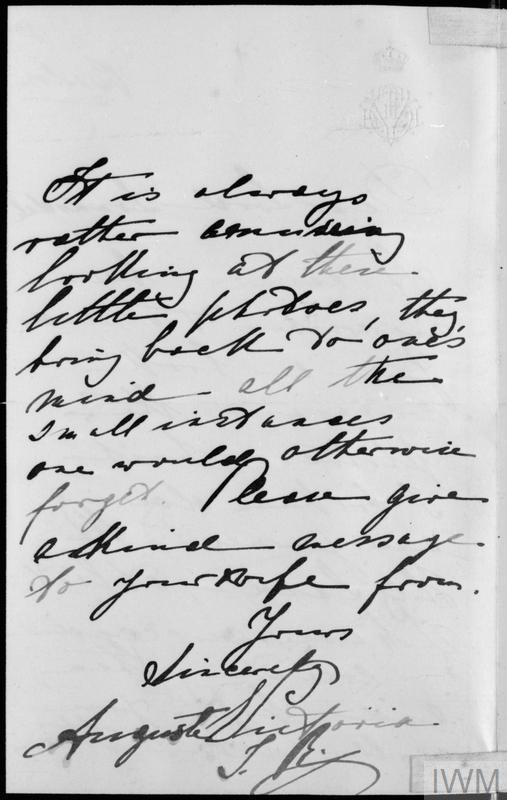 It is always
rather amusing
looking at these
little photoes, they
bring back to one's
mind all the
small instances
one would otherwise
forget. Please give
a kind message
to your wife from.
Yours
Sincerely
Auguste Victoria
I. R.
IWM